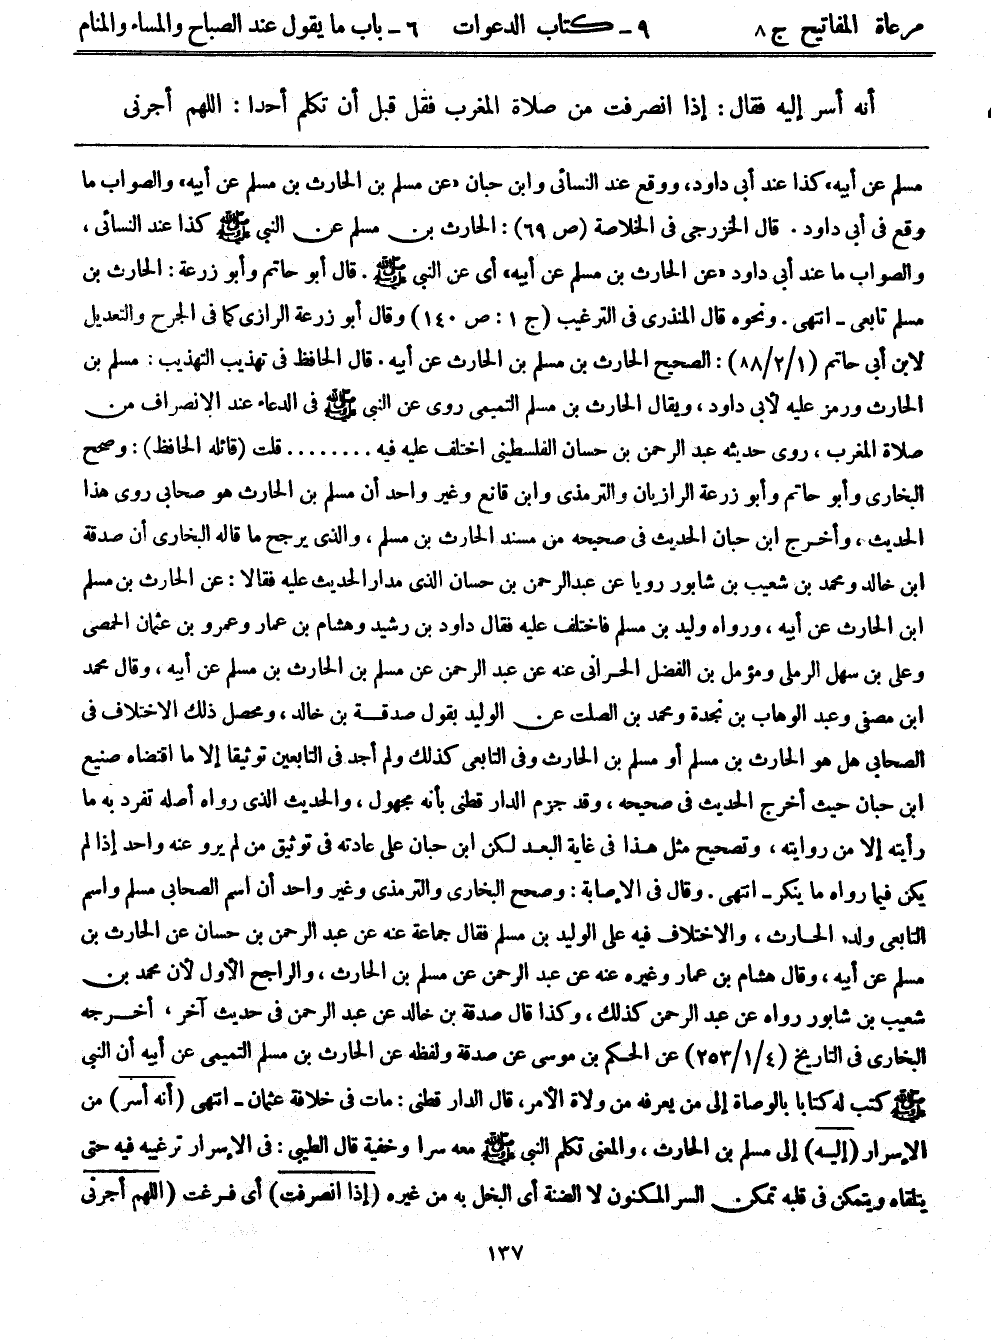 مرعاة المفاتيح ج ٨ ٩ ـ كتاب الدعوات ٦ ـ باب ما يقول عند الصباح والمساء والمنام
أنه أسر إليه فقال: إذا انصرفت من صلاة المغرب فقل قبل أن تكلم أحدا: اللهم أجرنى
مسلم عن أبيه، كذا عند أبى داود، ووقع عند النسائى وابن حبان «عن مسلم بن الحارث بن مسلم عن أبيه» والصواب ما
وقع فى أبى داود . قال الخزرجى فى الخلاصة (ص ٦٩): الحارث بن مسلم عن النبى ﷺ كذا عند النسائى ،
والصواب ما عند أبى داود «عن الحارث بن مسلم عن أبيه» أى عن النبى ﷺ . قال أبو حاتم وأبو زرعة: الحارث بن
مسلم تابعى ـ انتهى . ونحوه قال المنذرى فى الترغيب (ج ١ : ص ١٤٠) وقال أبو زرعة الرازى كما فى الجرح والتعديل
لابن أبى حاتم (٨٨/٢/١): الصحيح الحارث بن مسلم بن الحارث عن أبيه . قال الحافظ فى تهذيب التهذيب: مسلم بن
الحارث ورمز عليه لأبى داود ، ويقال الحارث بن مسلم التميمى روى عن النبى ﷺ فى الدعاء عند الإنصراف من
صلاة المغرب ، روى حديثه عبد الرحمن بن حسان الفلسطينى اختلف عليه فيه ........ قلت (قائله الحافظ): وصحح
البخارى وأبو حاتم وأبو زرعة الرازيان والترمذى وابن قانع وغير واحد أن مسلم بن الحارث هو صحابى روى هذا
الحديث ، وأخرج ابن حبان الحديث فى صحيحه من مسند الحارث بن مسلم ، والذى يرجح ما قاله البخارى أن صدقة
ابن خالد ومحمد بن شعيب بن شابور رويا عن عبدالرحمن بن حسان الذى مدار الحديث عليه فقالا: عن الحارث بن مسلم
ابن الحارث عن أبيه ، ورواه وليد بن مسلم فاختلف عليه فقال داود بن رشيد وهشام بن عمار وعمرو بن عثمان الحمصى
وعلى بن سهل الرملى ومؤمل بن الفضل الحرانى عنه عن عبد الرحمن عن مسلم بن الحارث بن مسلم عن أبيه ، وقال محمد
ابن مصفى وعبد الوهاب بن نجدة ومحمد بن الصلت عن الوليد بقول صدقة بن خالد ، ومحصل ذلك الاختلاف فى
الصحابى هل هو الحارث بن مسلم أو مسلم بن الحارث وفى التابعى كذلك ولم أجد فى التابعين توثيقا إلا ما اقتضاه صنيع
ابن حبان حيث أخرج الحديث فى صحيحه ، وقد جزم الدار قطنى بأنه مجهول ، والحديث الذى رواه أصله تفرد به ما
رأيته إلا من روايته ، وتصحيح مثل هذا فى غاية البعد لكن ابن حبان على عادته فى توثيق من لم يرو عنه واحد إذا لم
يكن فيما رواه ما ينكر ـ انتهى . وقال فى الإصابة: وصحح البخارى والترمذى وغير واحد أن اسم الصحابى مسلم واسم
التابعى ولده الحارث ، والاختلاف فيه على الوليد بن مسلم فقال جماعة عنه عن عبد الرحمن بن حسان عن الحارث بن
مسلم عن أبيه ، وقال هشام بن عمار وغيره عنه عن عبد الرحمن عن مسلم بن الحارث ، والراجح الأول لأن محمد بن
شعيب بن شابور رواه عن عبد الرحمن كذلك ، وكذا قال صدقة بن خالد عن عبد الرحمن فى حديث آخر ، أخرجه
البخارى فى التاريخ (٢٥٣/١/٤) عن الحكم بن موسى عن صدقة ولفظه عن الحارث بن مسلم التميمى عن أبيه أن النبى
ﷺ كتب له كتابا بالوصاة إلى من يعرفه من ولاة الأمر، قال الدار قطنى: مات فى خلافة عثمان ـ انتهى (أنه أسر) من
الإسرار (إليه) إلى مسلم بن الحارث ، والمعنى تكلم النبى ﷺ معه سرا وخفية قال الطيبى: فى الإسرار ترغيبه فيه حتى
يتلقاه ويتمكن فى قلبه تمكن السر المكنون لا الضنة أى البخل به من غيره (إذا انصرفت) أى فرغت (اللهم أجرنى
١٣٧